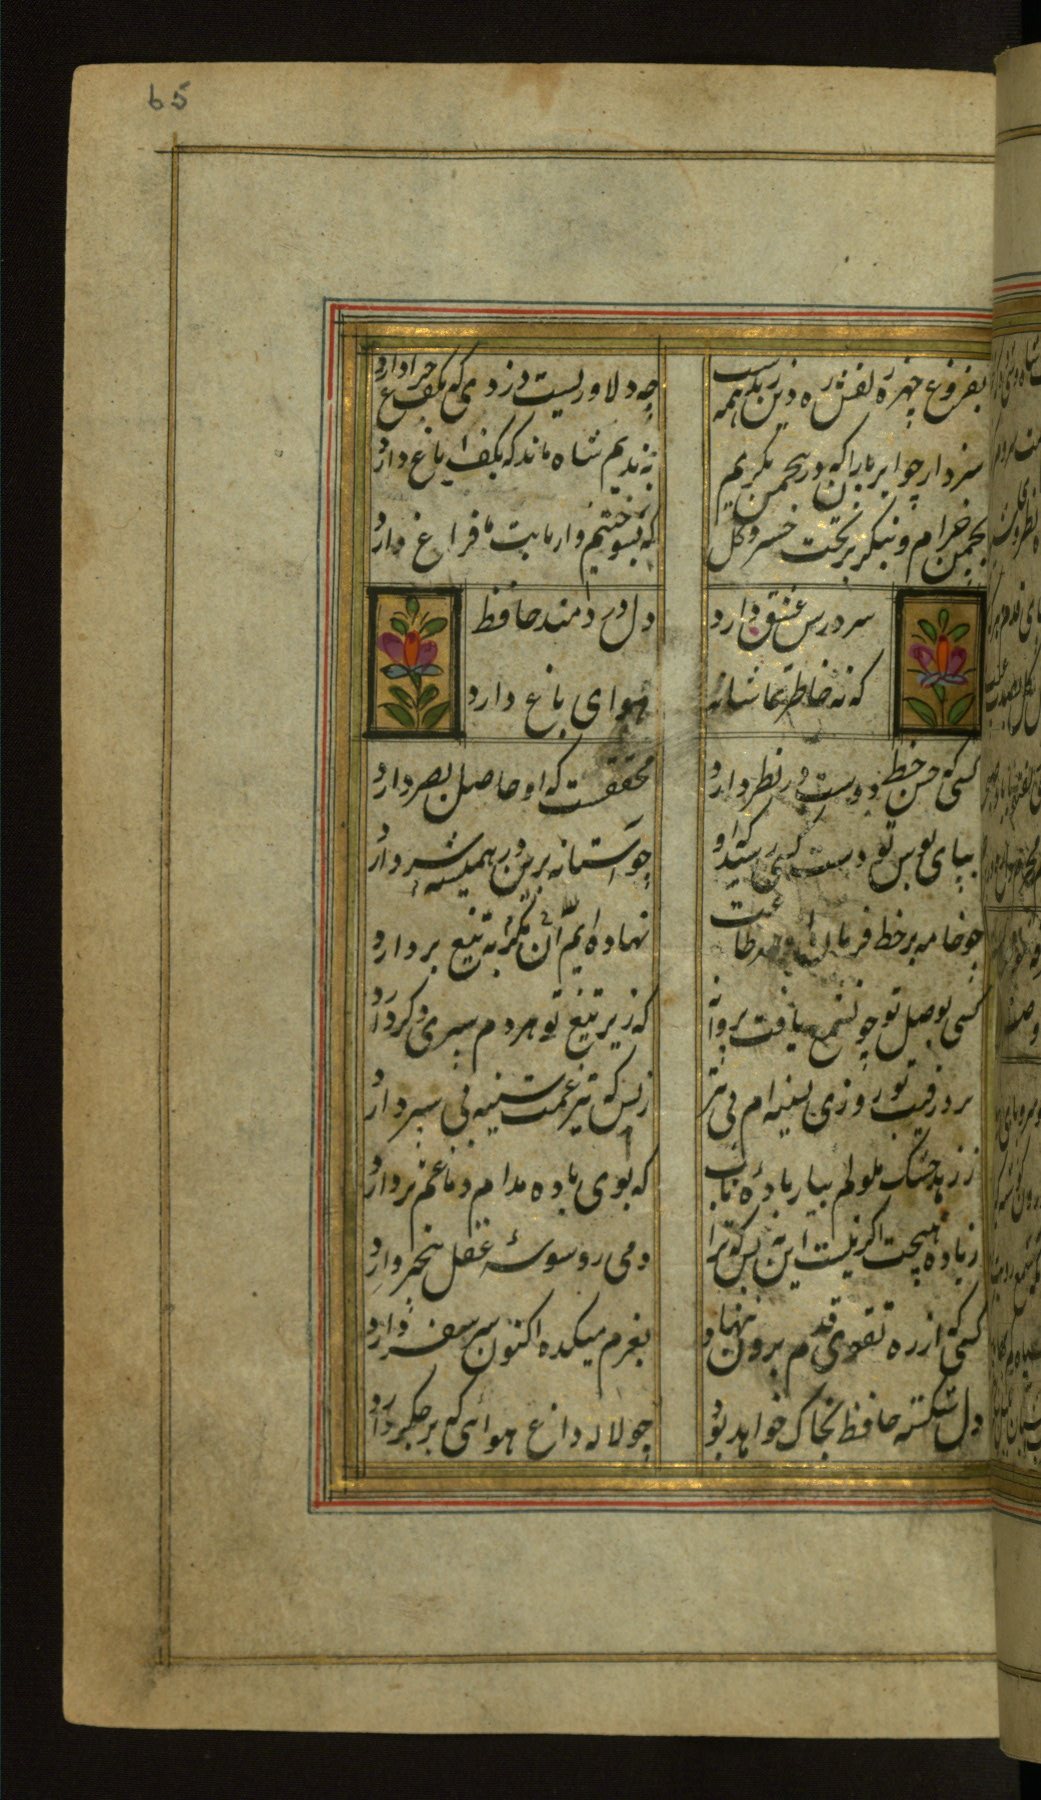 65
بفروغ چهره زلفش ره دین زند همه شب
چه دلاورست دزدی که بکف چراغ دارد
سزد ار چو ابر بهمن که درین چمن بگریم
نه ندیم شاه ماند که بکف ایاغ دارد
بچمن خرام و بنگر بر تخت خسرو گل
سر درس عشق دارد
دل دردمند حافظ
که نه خاطر تماشا نه
هوای باغ دارد
کسی که حسن خط دوست در نظر دارد
محققست که او حاصل بصر دارد
بپای بوس تو دست کسی رسید که او
چو آستانه برین در همیشه سر دارد
چو خامه بر خط فرمان طاعت
نهاده ایم
بر دارد
کسی بوصل تو چو شمع یافت پروانه
که زیر تیغ تو هر دم سری دگر دارد
ز بس که تیر غمت سینه بی سپر دارد
ز زهد خشک ملولم بیار باده ناب
که بوی باده مدامم دماغ تر دارد
ز باده هیچت اگر نیست این نه بس که ترا
دمی ز وسوسه عقل بیخبر دارد
کسی که از ره تقوی قدم برون ننهاد
بعزم میکده اکنون سر سفر دارد
دل شکسته حافظ بخاک خواهد برد
چو لاله داغ هوائی که بر جگر دارد